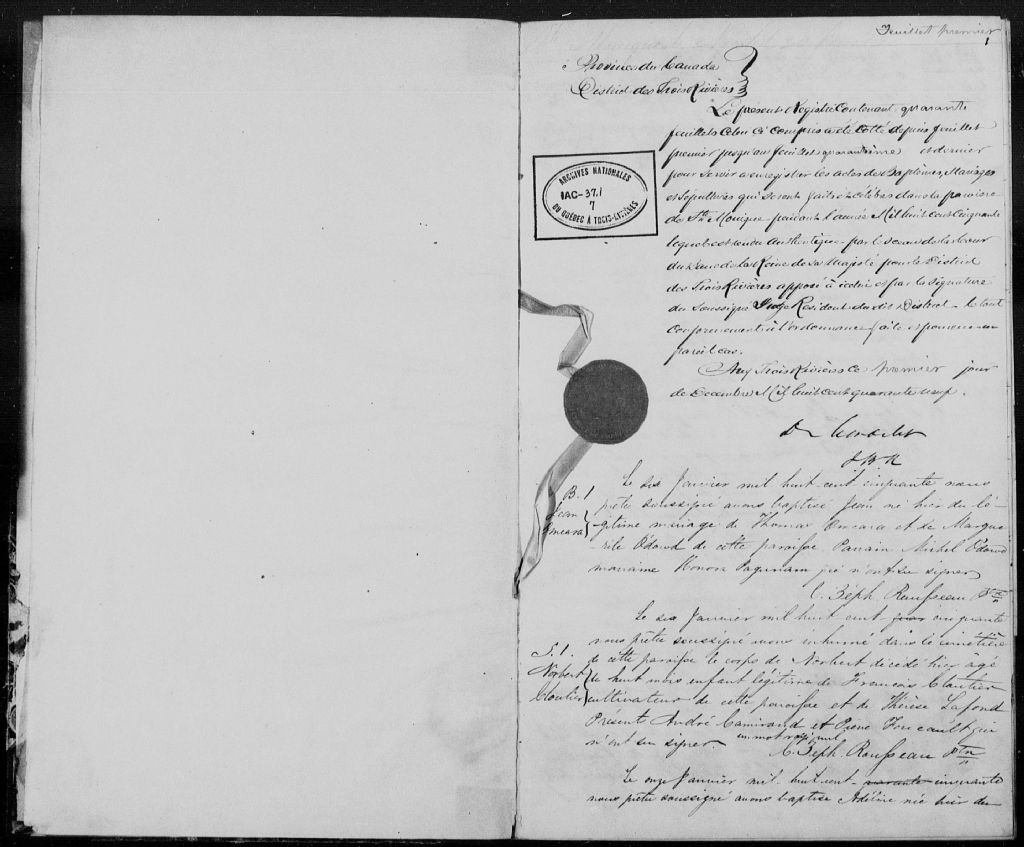 Feuillet premier
1
Province du Canada
District des Trois Rivières
Le present Registre Contenant quarante
feuillets Celui Ci Compris a été Cotté depuis feuillet
premier jusqu'au feuillet quarantième et dernier
pour servir a enregistrer les actes des Baptêmes, Mariages
et Sépultures qui seront faits et célébrés dans la paroisse
de Ste Monique pendant l'année Mil huit cent Cinquante
lequel est rendu Authentique par le sceau de la Cour
du Banc de la Reine de Sa Majesté pour le District
des Trois Rivières apposé à icelui et par la signature
du Soussigné Juge Resident du dit District le tout
Conformement à l'ordonnance faite et pourvue en
pareil cas.
Aux Trois Rivières ce premier jour
de Decembre Mil huit cent quarante neuf.
ARCHIVES NATIONALES
IAC-37.1
7
DU QUÉBEC À TROIS-RIVIÈRES
J.B.R
B. 1
Jean
Omeara
Le six Janvier mil huit cent cinquante nous
prêtre soussigné avons baptisé Jean né hier du lé-
gitime mariage de Thomas Omeara et de Margue
-rite Odowd de cette paroisse Parrain Michel Odowd
marraine Honora qui n'ont su signer
C. Zéph. Rousseau Ptre
S. 1.
Norbert
Cloutier
Le six Janvier mil huit cent cinquante
nous prêtre soussigné avons inhumé dans le cimetière
de cette paroisse le corps de Norbert décédé hier âgé
de huit mois enfant légitime de François Cloutier
cultivateur de cette paroisse et de Thérèse Lafond
Présent André Camirand et Pierre Foucault qui
n'ont su signer un mot rayé nul
C. Zéph. Rousseau Ptre
Le onze Janvier mil huit cent cinquante
nous prêtre soussigné avons baptisé Adéline née hier du